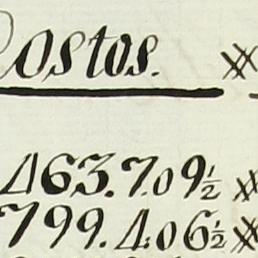 Costos.
463.7.09½
799.4.06½